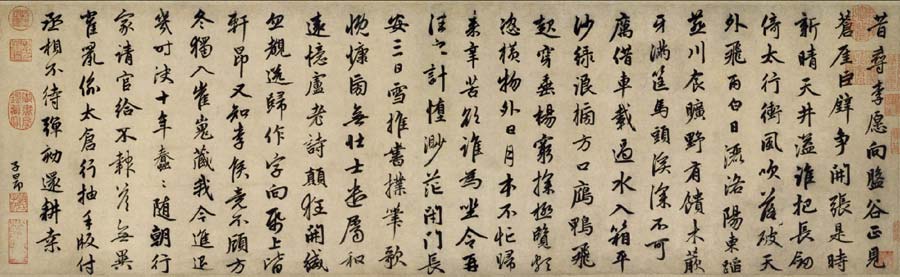 昔尋李愿向盤谷正見
蒼崖巨壁爭開張是時
新晴天井溢誰把長劒
倚太行衝風吹落破天
外飛雨白日灑洛陽東蹈
燕川衣曠野有饋木蕨
牙滿筐馬頭溪深不可
厲借車載過水入箱平
沙綠浪搒方口鴈鴨飛
起穿垂楊窮探極覽頗
恣橫物外日月本不忙歸
來辛苦欲誰為坐令再
往之計墮渺茫閉門長
安三日雪推書撲筆歌
慨慷旁無壯士遣屬和
遠憶盧老詩顛狂開緘
忽覩送歸作字向帋上皆
軒昂又知李侯竟不顧方
冬獨入崔嵬藏我今進退
幾時決十年蠢〻隨朝行
家請官給不報答無異
雀鼠偷太倉行抽手版付
丞相不待彈劾還耕桑
子昂